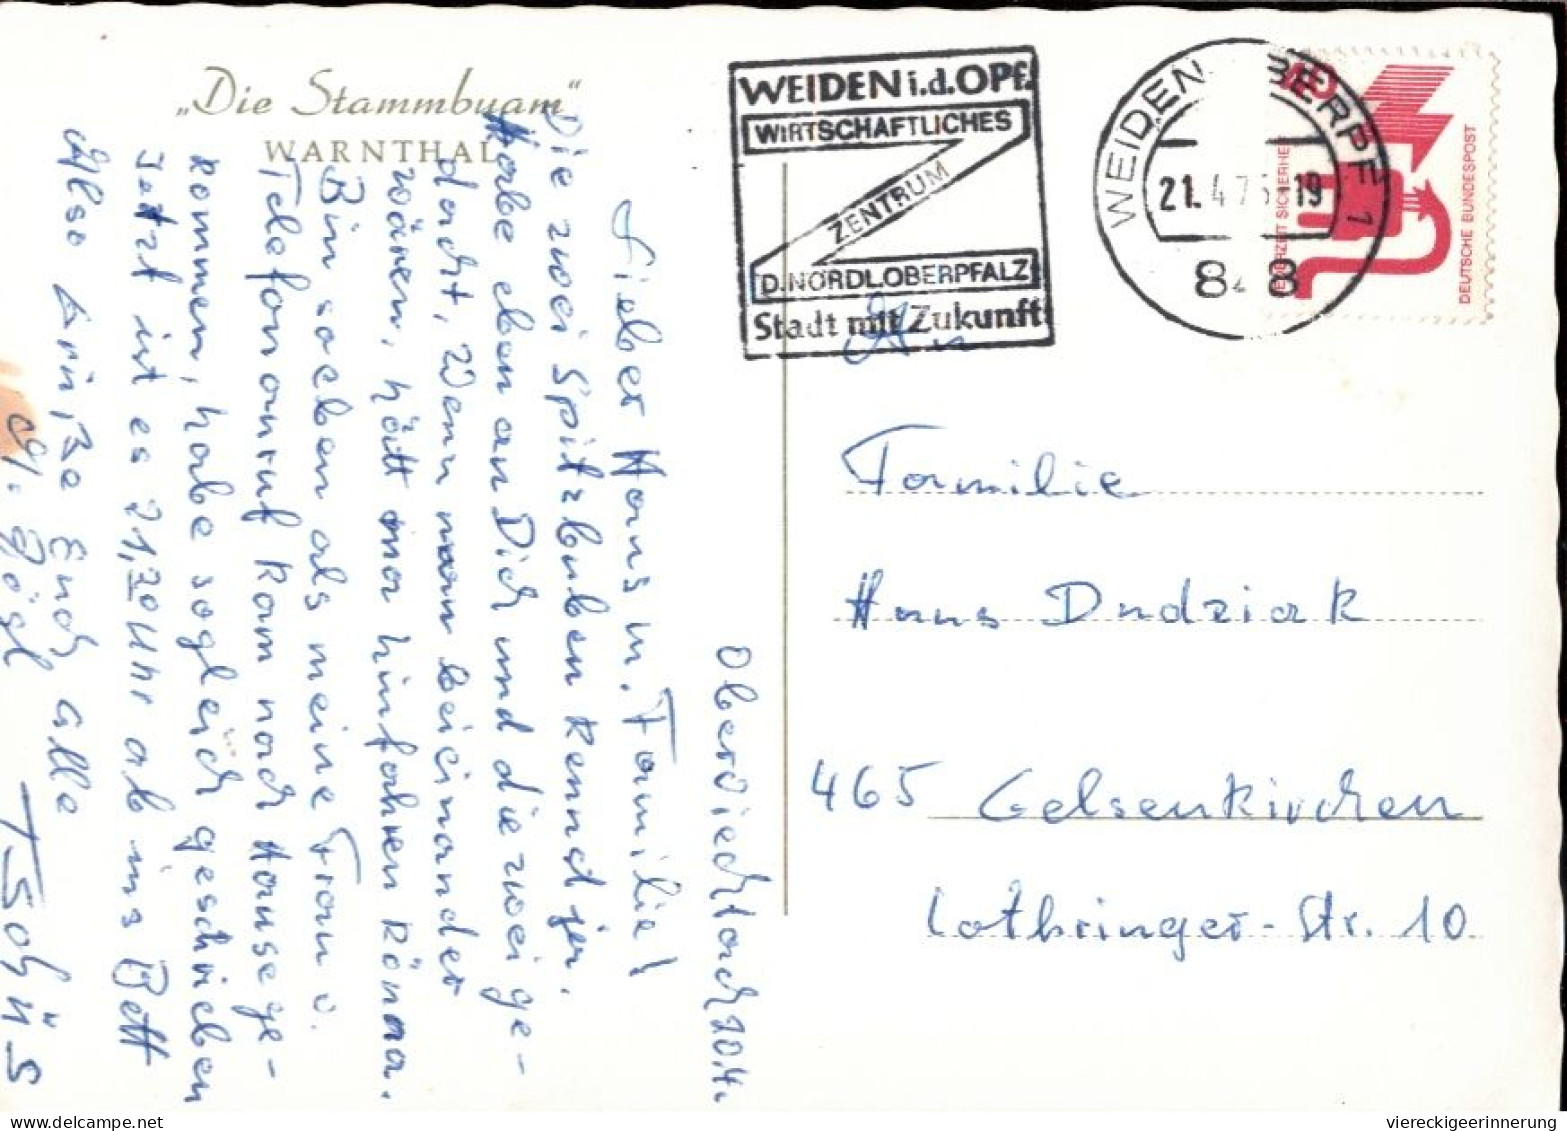 „Die Stammbuam“
WARNTHAL
Oberviechtach 20.4.
Lieber Hans u. Familie!
Die zwei Spitzbuben kennst jer.
Habe eben an Dich und die zwei ge-
dacht, Wenn man beieinander
wären, hätt ma hinfahren könna.
Bin soeben als meine Frau v.
Telefonanruf kam nach Hause ge-
kommen, habe sogleich geschrieben
Jetzt ist es 21,30 Uhr ab ins Bett
Also Grüße Euch alle
Tschüs
WEIDEN i.d.OPf.
WIRTSCHAFTLICHES
ZENTRUM
D.NÖRDL.OBERPFALZ
Stadt mit Zukunft
WEIDEN OBERPF 1
21. 4.75-19
848
JEDERZEIT SICHERHEIT
DEUTSCHE BUNDESPOST
40
An
Familie
Hans Dudziak
465 Gelsenkirchen
Lothringer-Str. 10
viereckigeerinnerung